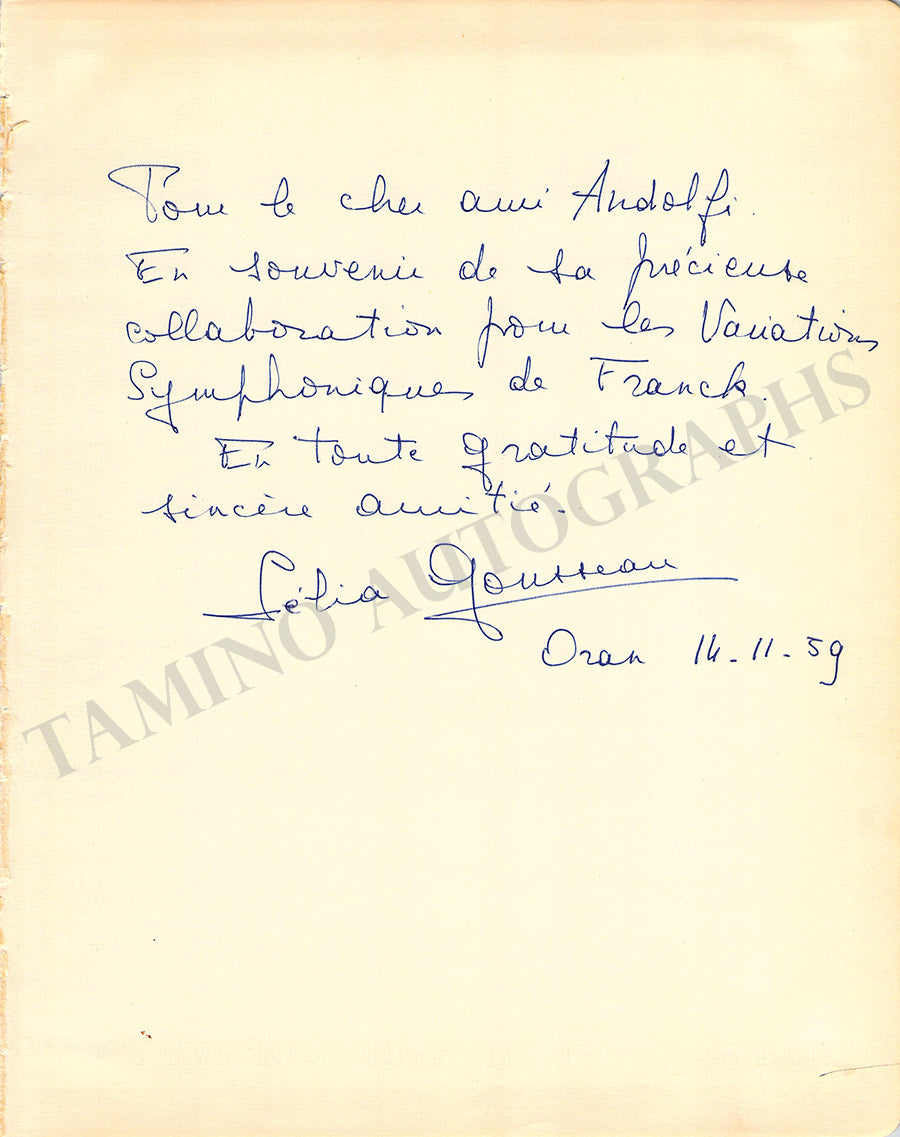 Pour le cher ami Andolfi.
En souvenir de sa précieuse
collaboration pour les Variations
Symphoniques de Franck.
En toute gratitude et
sincère amitié.
Lélia Gousseau
Oran 14-11-59
TAMINO AUTOGRAPHS